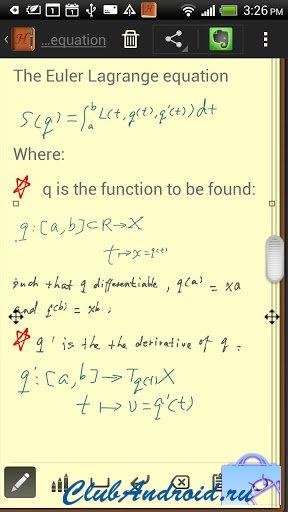 3:26 PM
...equation
The Euler Lagrange equation
S(q) = ∫ₐᵇ L(t, q(t), q'(t)) dt
Where:
q is the function to be found:
q: [a, b] ⊂ R → X
t ↦ x = q(t)
such that q differentiable, q(a) = xa
and q(b) = xb;
q' is the the derivative of q:
q': [a, b] → T_q(t) X
t ↦ v = q'(t)
ClubAndroid.ru